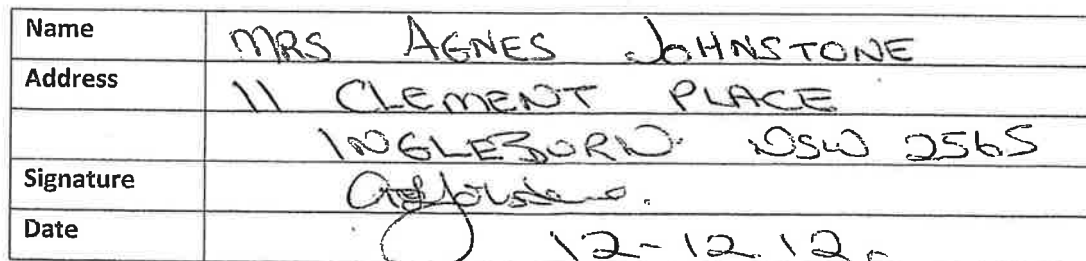 Name MRS AGNES JOHNSTONE
Address 11 CLEMENT PLACE
INGLEBURN NSW 2565
Signature
Date 12-12.12.